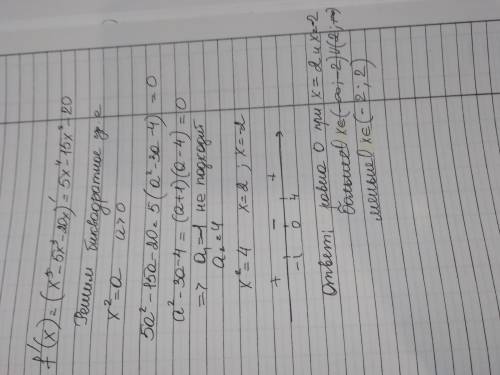 f'(x) = (x⁵-5x³-20x)' = 5x⁴-15x²-20
Решим биквадратное ур-е
x²=a a>0
5a²-15a-20=5(a²-3a-4)=0
a²-3a-4=(a+1)(a-4)=0
=> a₁=-1 не подходит
a₂=4
x²=4 x=2; x=-2
+ - - +
-1 0 4
Ответ: равна 0 при x=2 и x=-2
больше x∈(-∞;-2)∪(2;+∞)
меньше x∈(-2;2)